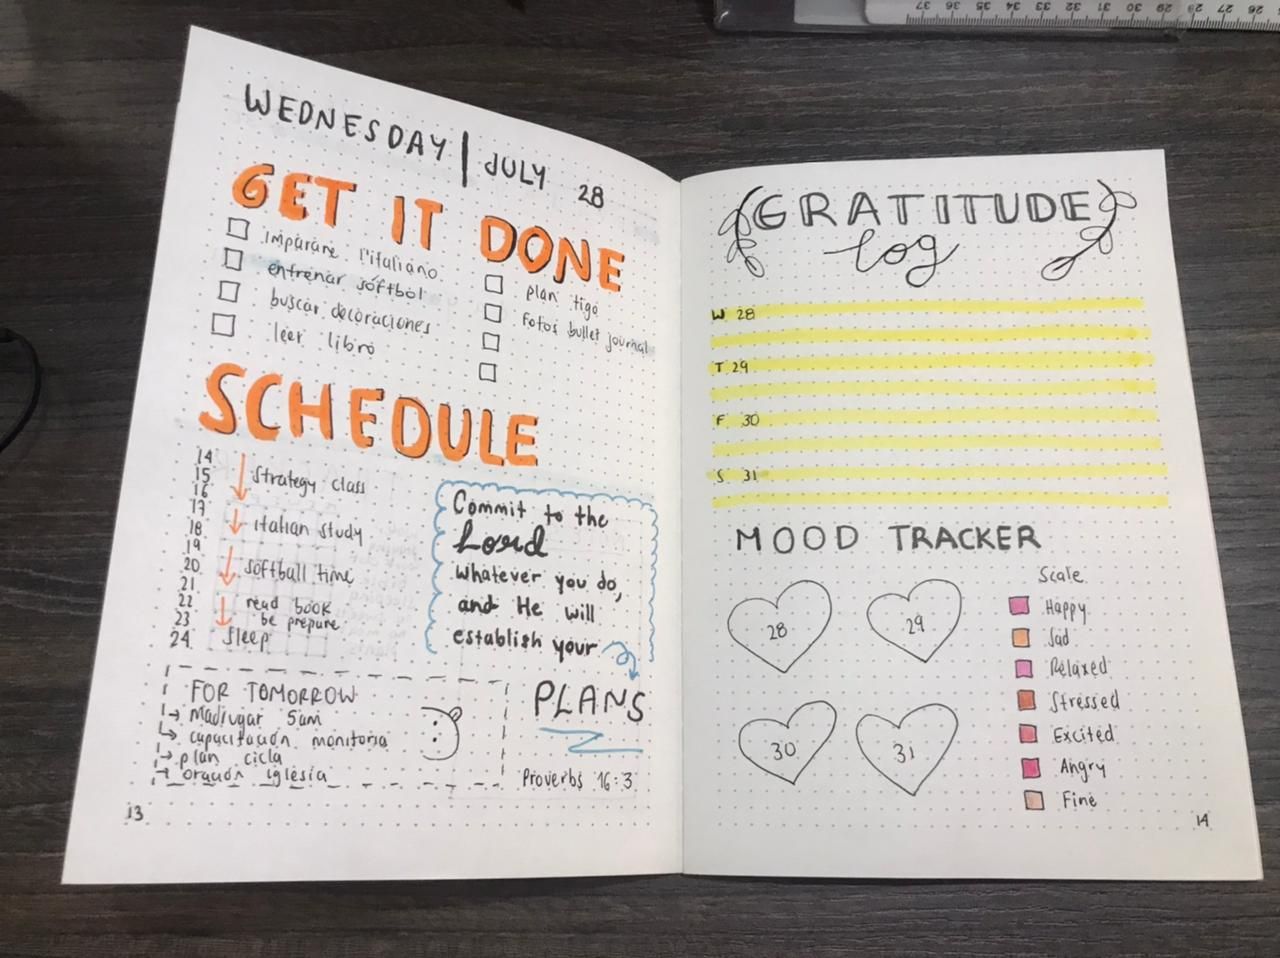 WEDNESDAY | JULY 28
GET IT DONE
imparare l'italiano
entrenar softbol
buscar decoraciones
leer libro
plan tigo
fotos bullet journal
SCHEDULE
14
15
16
17
18
19
20
21
22
23
24
Strategy class
italian study
softball time
read book
be prepare
Sleep
Commit to the
Lord
whatever you do,
and He will
establish your
PLANS
Proverbs 16:3
FOR TOMORROW
Madrugar 5am
capacitación monitoria
plan cicla
oración iglesia
13
GRATITUDE
log
W 28
T 29
F 30
S 31
MOOD TRACKER
28
29
30
31
Scale
Happy
Sad
Relaxed
Stressed
Excited
Angry
Fine
14
37 36 35 34 33 32 31 30 29 28 27 26